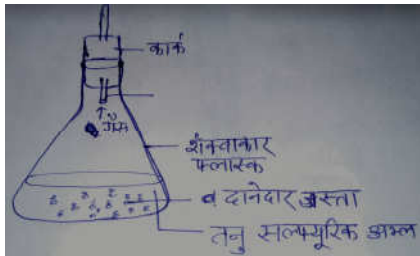 कार्क
गैस
शंक्वाकार
फ्लास्क
दानेदार जस्ता
तनु सल्फ्यूरिक अम्ल